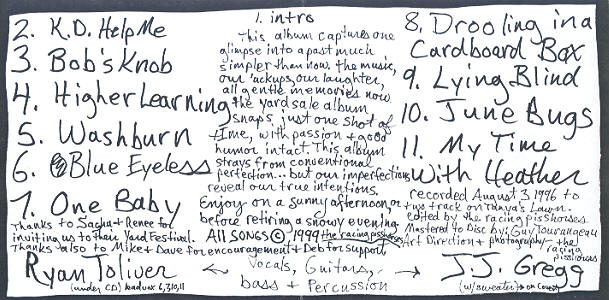 2. K.D. Help Me
3. Bob's Knob
4. Higher Learning
5. Washburn
6. Blue Eyeless
7. One Baby
Thanks to Sacha + Renee for
inviting us to their Yard Festival.
Thanks also to Mike + Dave for encouragement + Deb for support
1. intro
This album captures one
glimpse into a past much
simpler than now. the music,
our 'ackups, our laughter,
all gentle memories now
the yard sale album
snaps just one shot of
time, with passion + good
humor intact. This album
strays from conventional
perfection... but our imperfections
reveal our true intentions.
Enjoy on a sunny afternoon or
before retiring a snowy evening
All SONGS © 1999 the racing pisshorses
8. Drooling in a
Cardboard Box
9. Lying Blind
10. June Bugs
11. My Time
With Heather
recorded August 3 1996 to
two track on Lawn.
edited by the racing pisshorses.
Mastered to Disc by: Guy Tourangeau
Art Direction + photography - the
racing
pisshorses
Ryan Toliver
(under CD) lead vox 6,310,11
Vocals, Guitars,
bass + Percussion
J.J. Gregg
(w/sweater) on